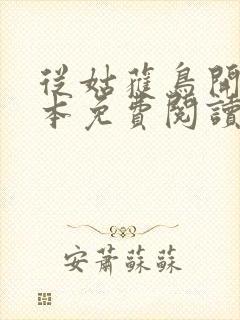 從姑蘿鳥開
本免費閱讀
安蕭蘇蘇